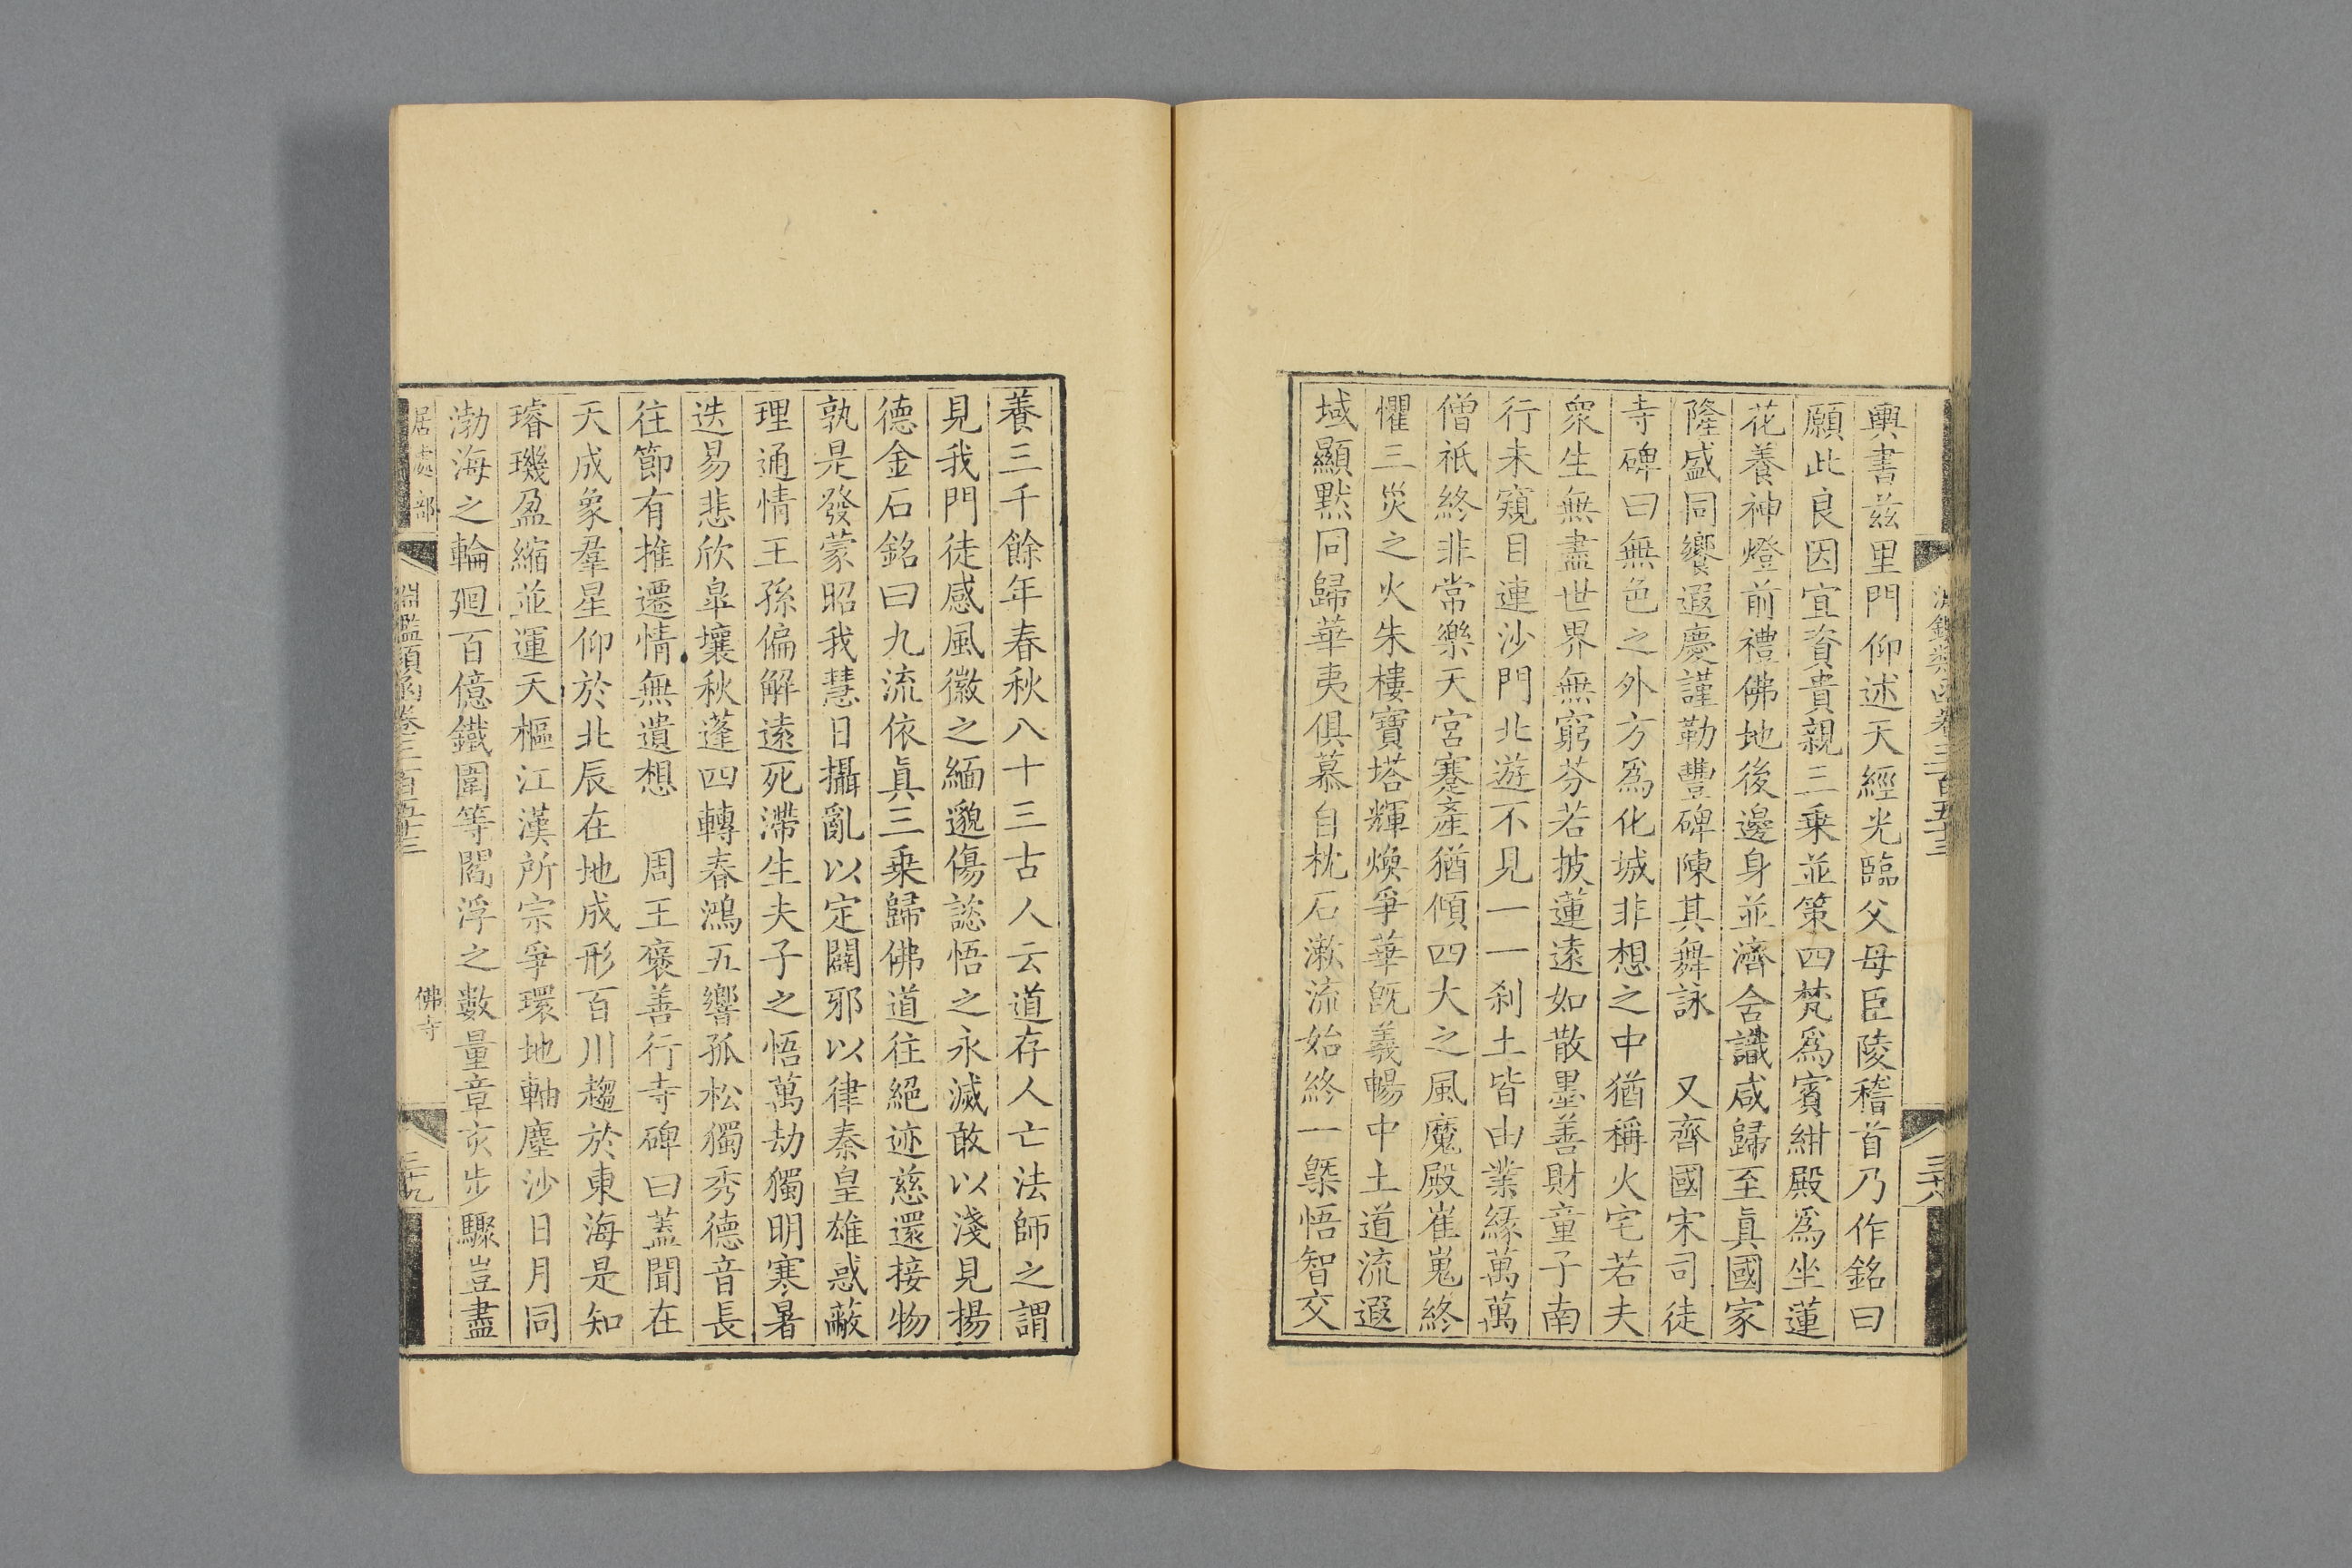 淵鑑類函卷三百五十三
三十八
輿書玆里門仰述天經光臨父母臣陵稽首乃作銘曰
願此良因宜資貴親三乗並策四梵爲賓紺殿爲坐蓮
花養神燈前禮佛地後邊身並濟含識咸歸至眞國家
隆盛同饗遐慶謹勒豐碑陳其舞詠　又齊國宋司徒
寺碑曰無色之外方爲化城非想之中猶稱火宅若夫
衆生無盡世界無窮芬若披蓮遠如散墨善財童子南
行未窺目連沙門北遊不見一一刹土皆由業緣萬萬
僧祇終非常樂天宮蹇產猶傾四大之風魔殿崔嵬終
懼三災之火朱樓寶塔輝煥爭華旣義暢中土道流遐
域顯默同歸華夷俱慕自枕石漱流始終一槩悟智交
養三千餘年春秋八十三古人云道存人亡法師之謂
見我門徒感風徽之緬邈傷諡悟之永滅敢以淺見揚
德金石銘曰九流依眞三乗歸佛道往絕迹慈還接物
孰是發蒙昭我慧日攝亂以定闢邪以律秦皇雄惑蔽
理通情王孫偏解遠死滯生夫子之悟萬劫獨明寒暑
迭易悲欣皐壤秋蓬四轉春鴻五響孤松獨秀德音長
往節有推遷情無遺想　周王褒善行寺碑曰蓋聞在
天成象羣星仰於北辰在地成形百川趨於東海是知
璿璣盈縮並運天樞江漢所宗爭環地軸塵沙日月同
渤海之輪廻百億鐵圍等閻浮之數量章亥步驟豈盡
居處部
佛寺
淵鑑類函卷三百五十三
三十九